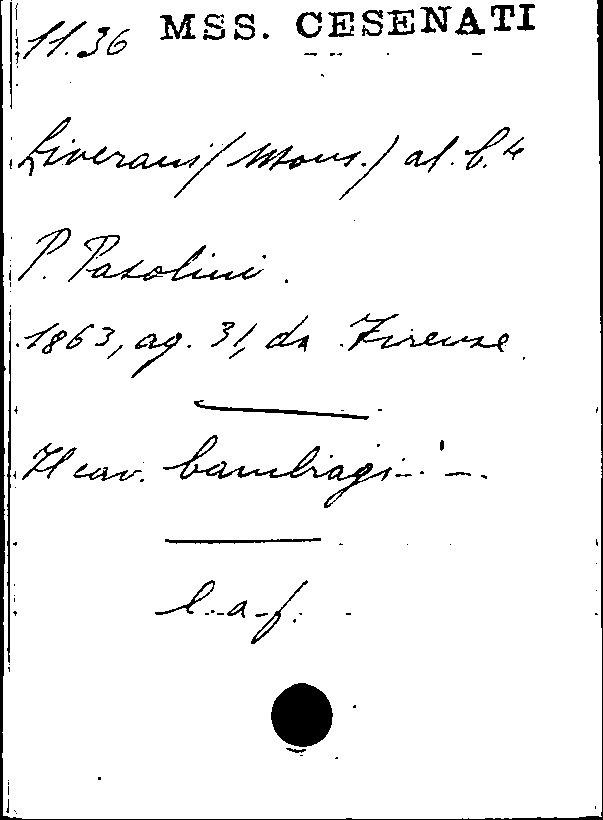 11.36 MSS. CESENATI
Liverani (Mons.) al C.te
P. Pasolini.
1863, ag. 31, da Firenze.
Il cav. Cambiagi
l. a. f.